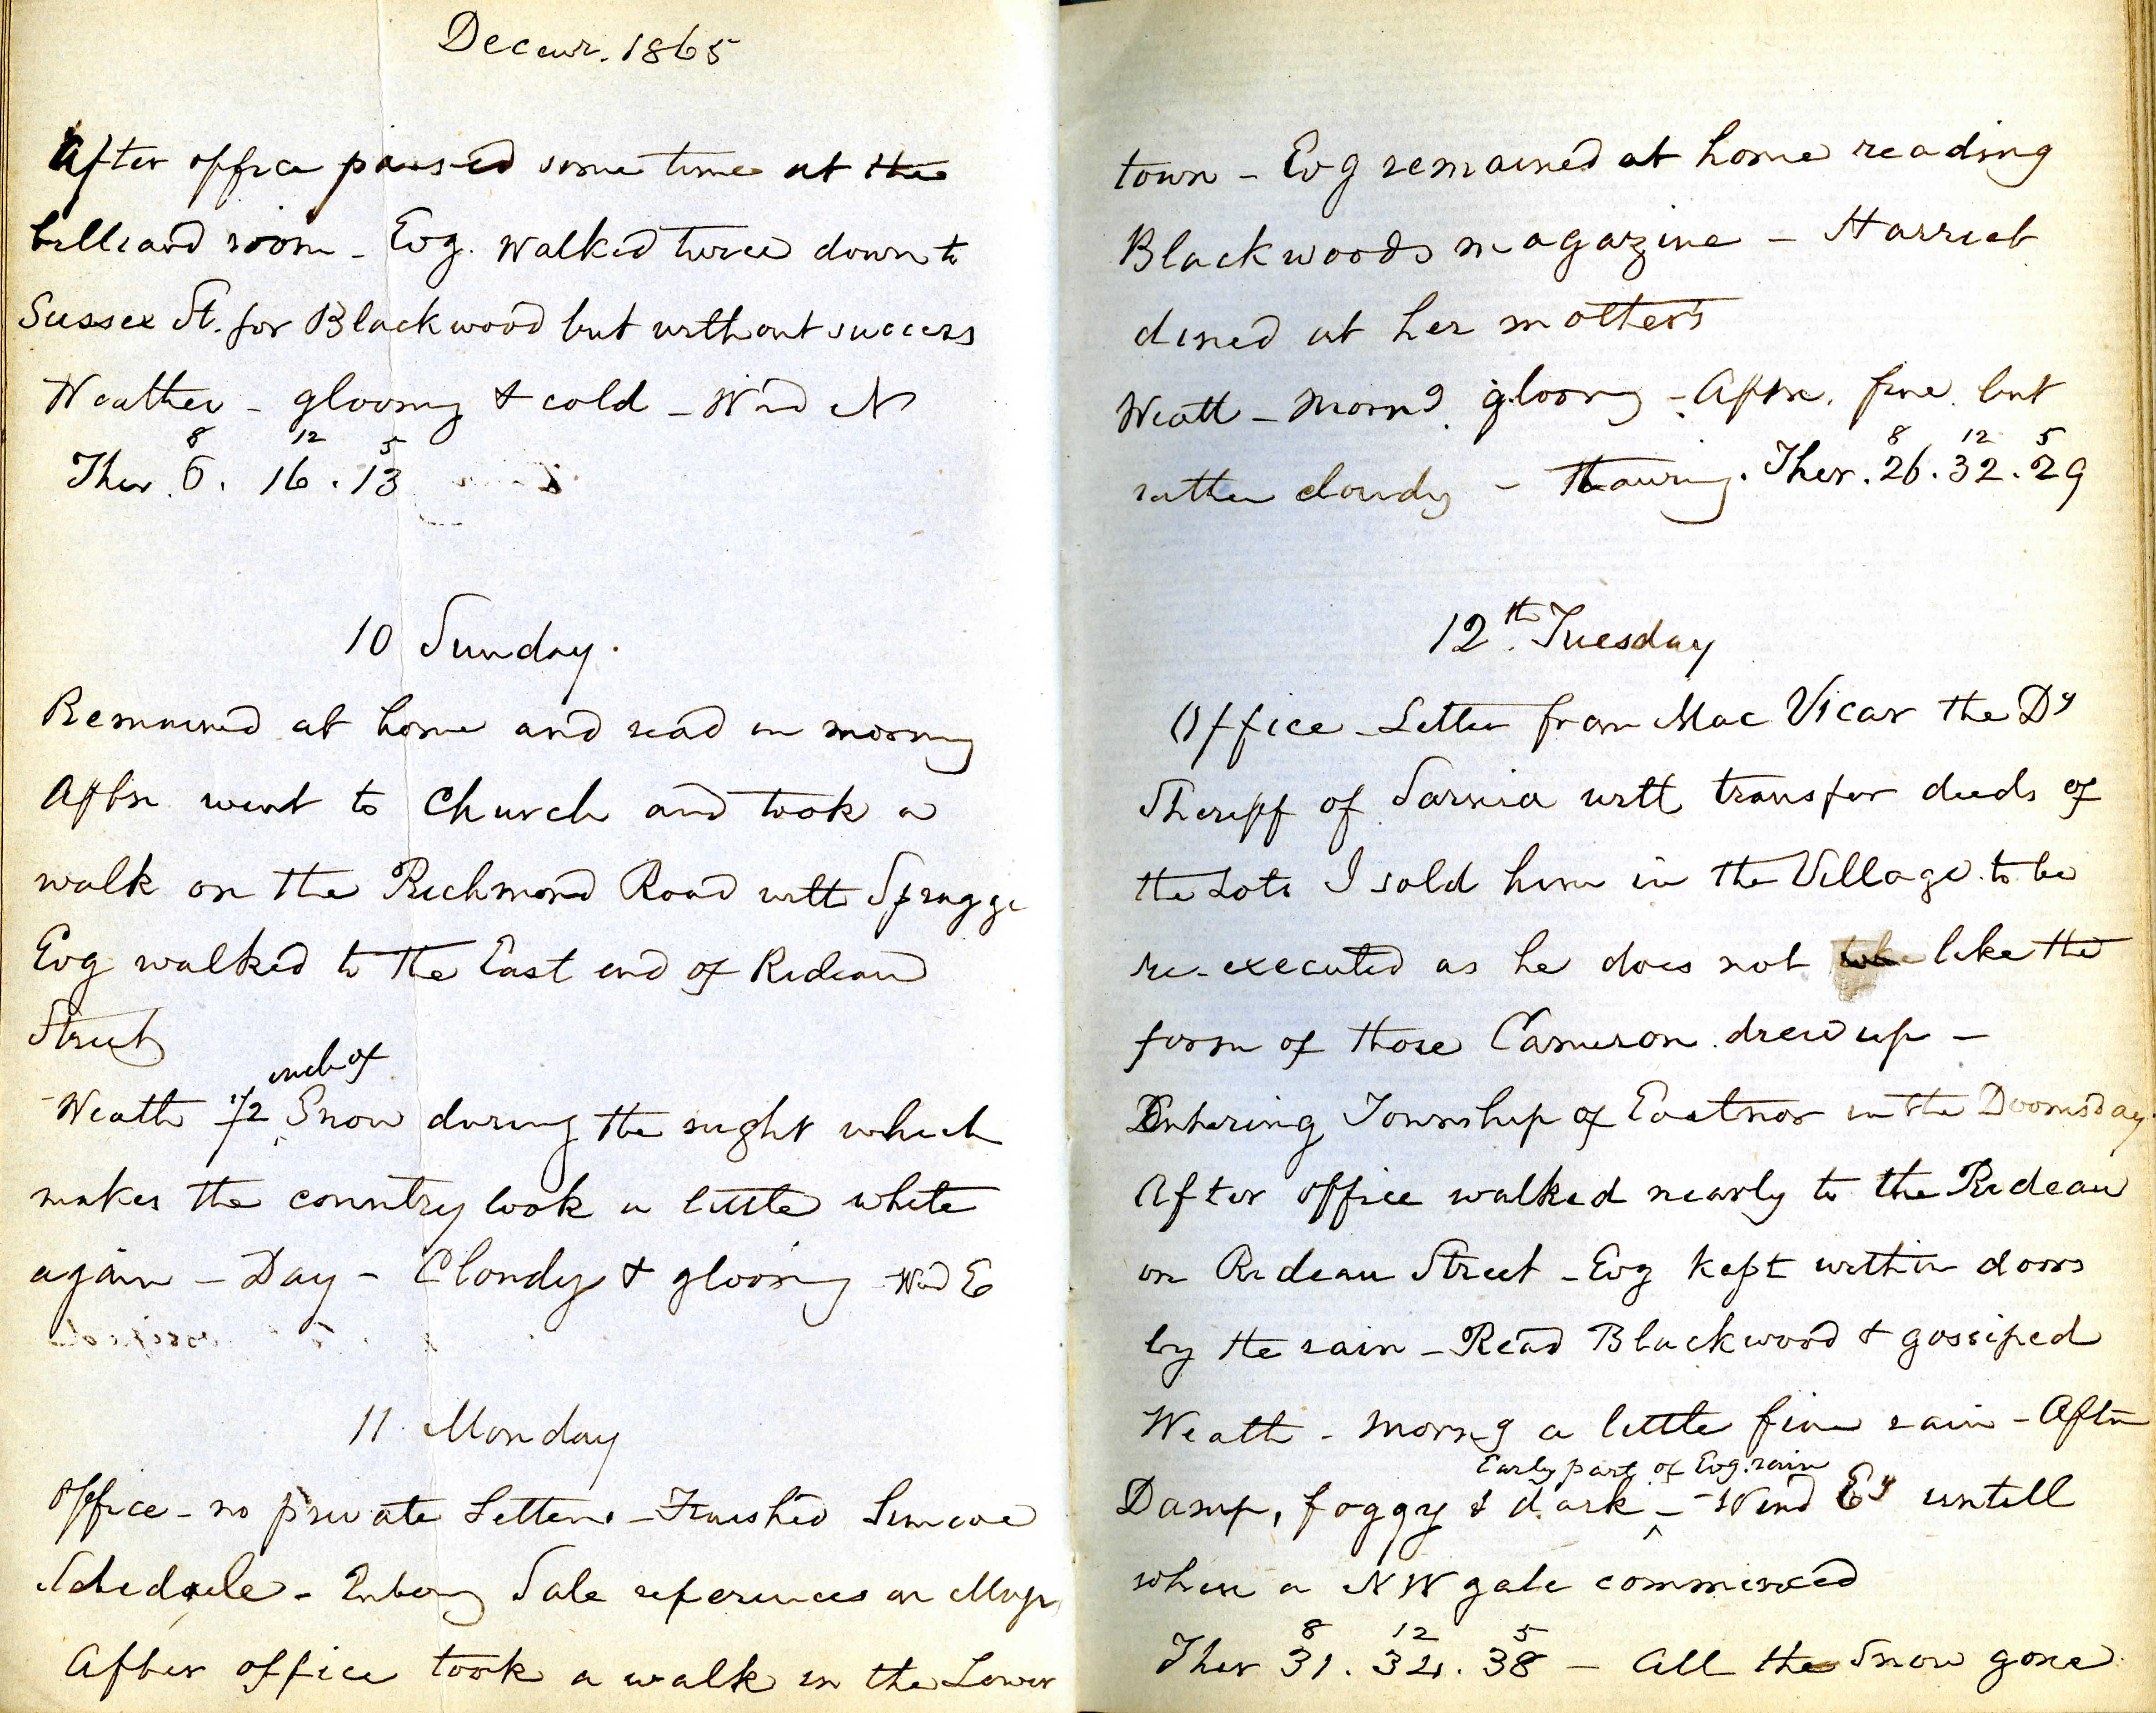 Decemr. 1865
After office passed some time at the
billiard room - Evg. walked twice down to
Sussex St. for Blackwood but without success
Weather - gloomy & cold - Wind N
8 12 5
Ther. 6. 16. 13
10 Sunday.
Remained at home and read in morning
Aftn went to Church and took a
walk on the Richmond Road with Spragge
Evg walked to the East end of Rideau
Street
inch of
Weath 1/2 Snow during the night which
makes the country look a little white
again - Day - Cloudy & gloomy - Wind E
11 Monday
Office - no private Letters - Finished Simcoe
Schedule - Entering Sale references on Maps
After office took a walk in the Lower
town - Evg remained at home reading
Blackwoods magazine - Harriet
dined at her mother's
Weath - Morng gloomy - Aftn. fine but
rather cloudy - Thawing. Ther. 26. 32. 29
8 12 5
12th Tuesday
Office - Letter from Mac Vicar the Dy
Sheriff of Sarnia with transfer deeds of
the Lots I sold him in the Village to be
re-executed as he does not like the
form of those Cameron drew up -
Entering Township of Eastnor in the Doomsday
After office walked nearly to the Rideau
on Rideau Street - Evg kept within doors
by the rain - Read Blackwood & gossiped
Weath - Morng a little fine rain - Aftn
Early part of Evg. rain
Damp, foggy & dark - Wind Ey untill
when a NW gale commenced
8 12 5
Ther 31. 34. 38 - All the Snow gone